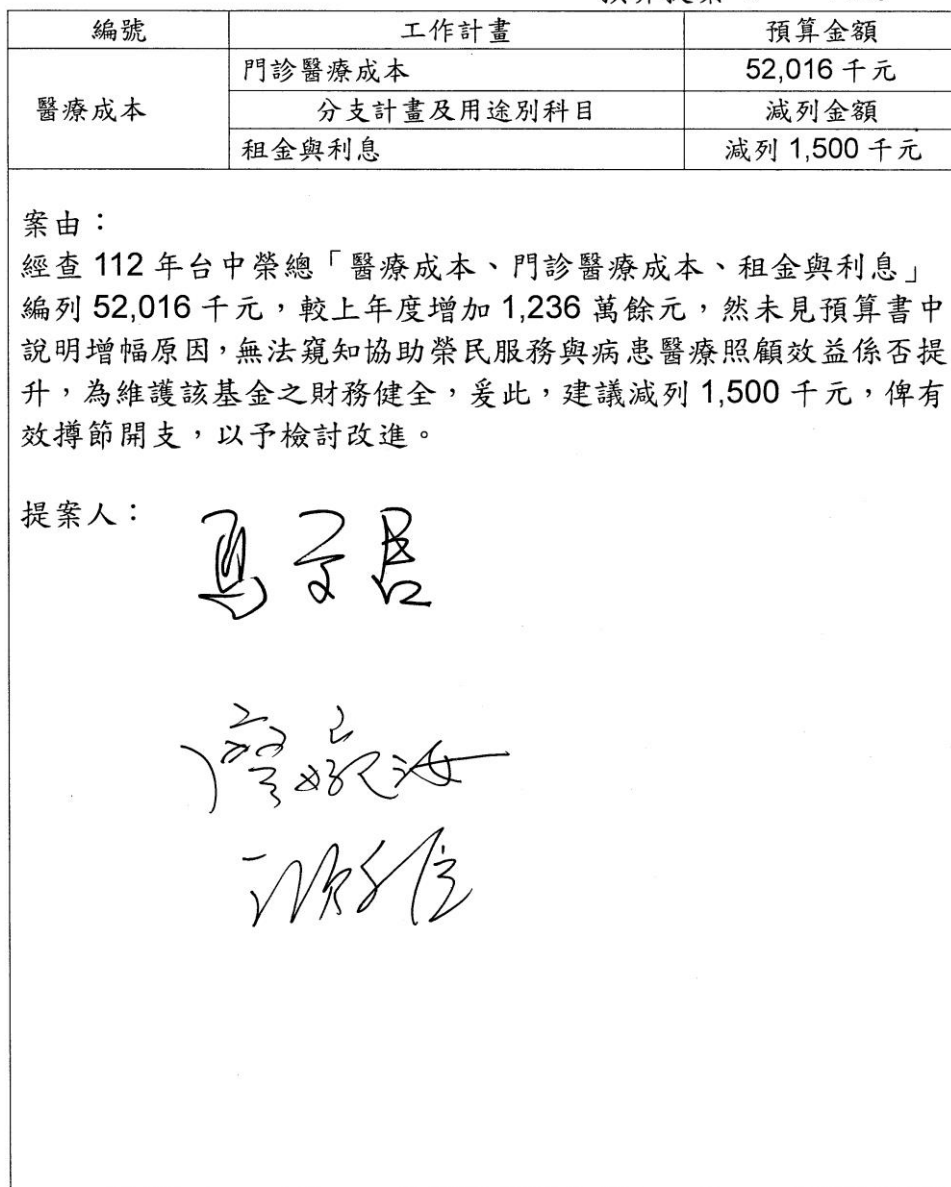 編號 工作計畫 預算金額
醫療成本 門診醫療成本 52,016 千元
分支計畫及用途別科目 減列金額
租金與利息 減列 1,500 千元
案由：
經查 112 年台中榮總「醫療成本、門診醫療成本、租金與利息」
編列 52,016 千元，較上年度增加 1,236 萬餘元，然未見預算書中
說明增幅原因，無法窺知協助榮民服務與病患醫療照顧效益係否提
升，為維護該基金之財務健全，爰此，建議減列 1,500 千元，俾有
效撙節開支，以予檢討改進。
提案人：
馬文君